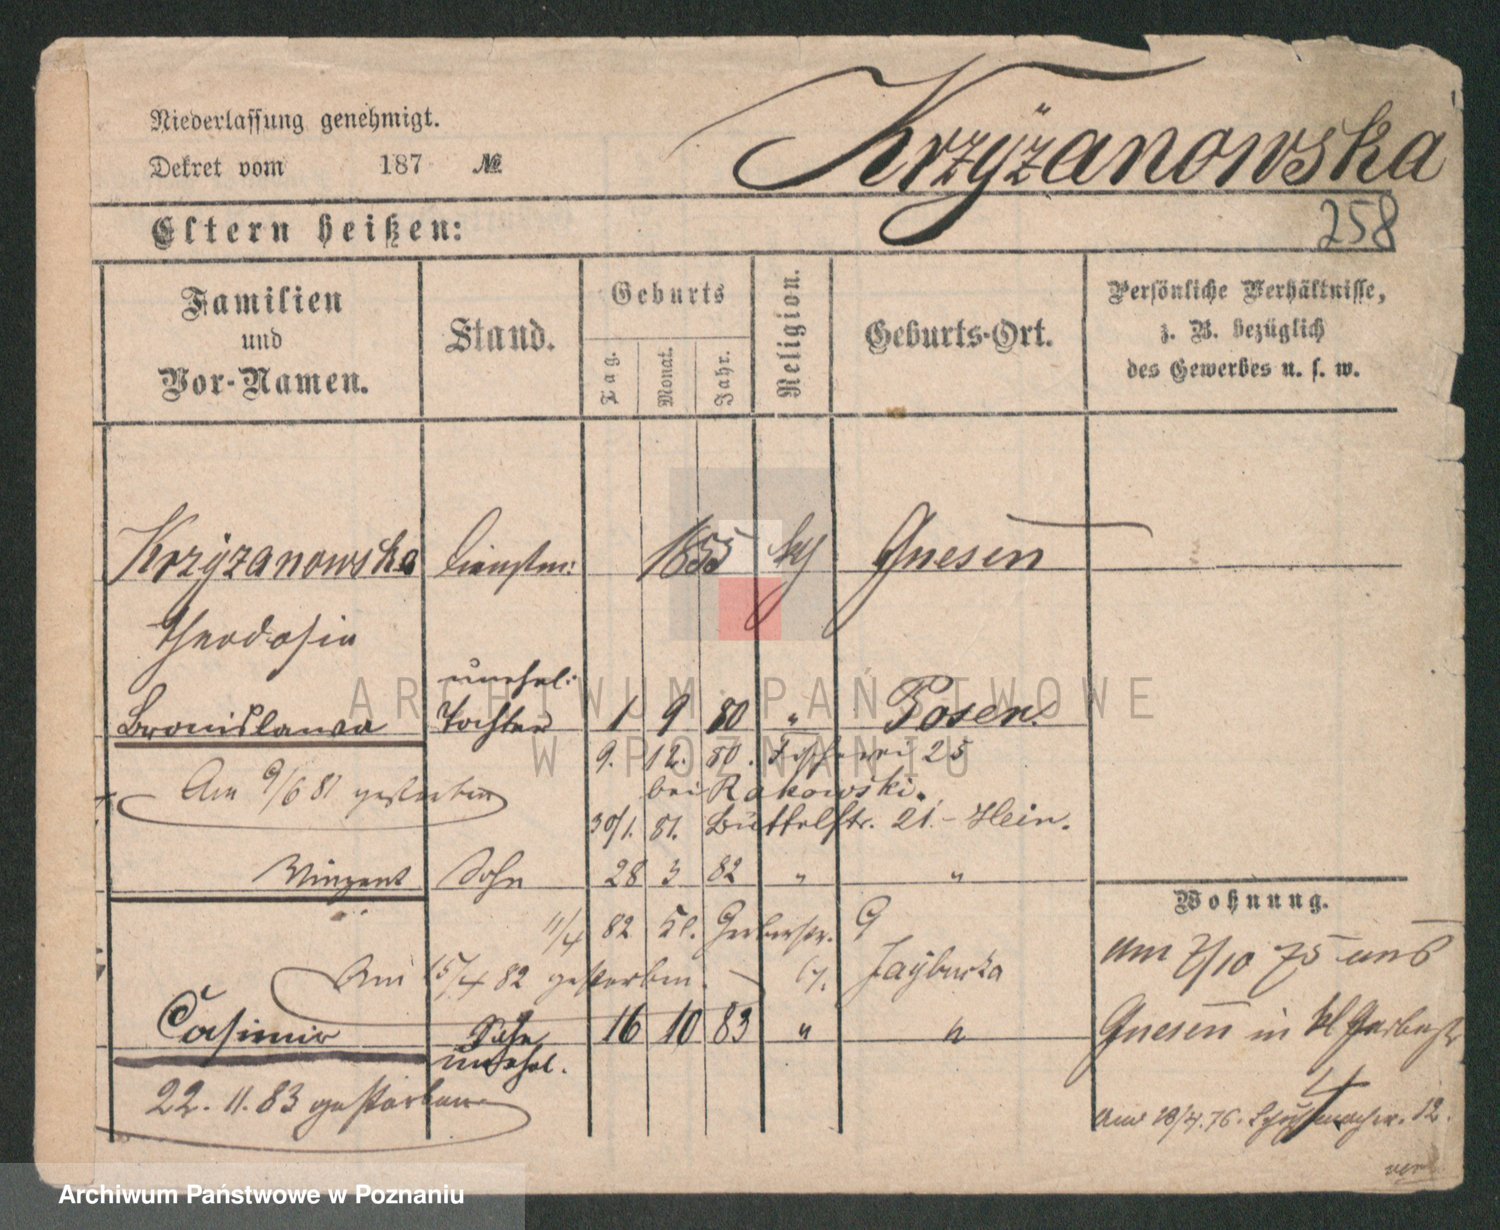 Niederlassung genehmigt.
Dekret vom 187 №
Krzyżanowska
258
Eltern heißen:
Familien und Vor-Namen.
Stand.
Geburts
Tag.
Monat.
Jahr.
Religion.
Geburts-Ort.
Persönliche Verhältnisse, z. B. bezüglich des Gewerbes u. s. w.
Krzyżanowska 1855 Gnesen
Theodosia
unehel:
Bronislawa Tochter 1 9 80 " Posen
9. 12. 80. Fischerei 25
Am 9/6 81 gestorben bei Rakowski.
30/1. 81. Büttelstr. 21. - Hein.
Vinzent Sohn 28 3 82 " "
Wohnung.
11/4 82 Kl. Gerberstr. 9
Am 15/4 82 gestorben.
am 7/10 75 aus
Casimir Sohn 16 10 83 " "
Gnesen in kl Gerberstr
unehel.
22. 11. 83 gestorben
4
am 18/4. 76. 12.
ARCHIWUM PAŃSTWOWE
W POZNANIU
Archiwum Państwowe w Poznaniu